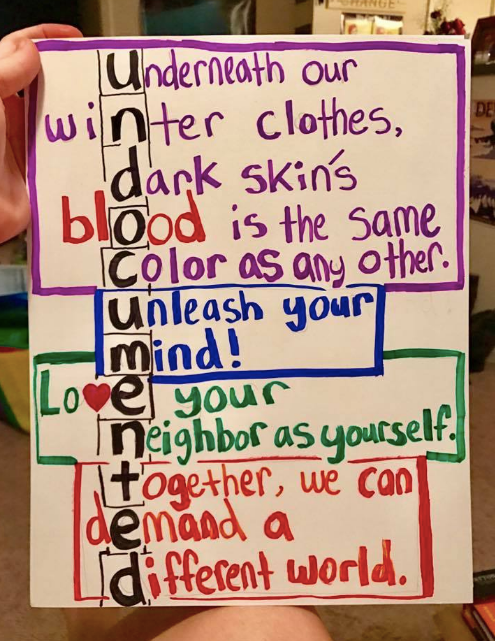 CHANGE
underneath our
winter clothes,
dark skin's
blood is the same
color as any other.
unleash your
mind!
Lo♥e your
neighbor as yourself.
together, we can
demand a
different world.